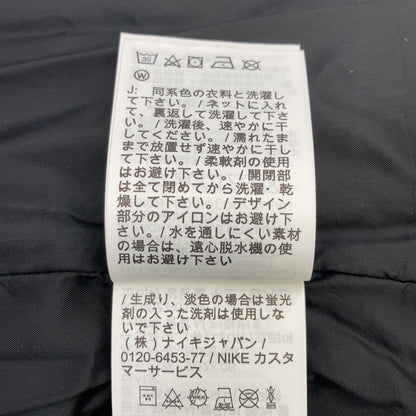 30
W
J: 同系色の衣料と洗濯し
て下さい。/ ネットに入れ
て、裏返して洗濯して下さ
い。/ 洗濯後、速やかに干
してください。/ 濡れたま
まで放置せず速やかに干し
て下さい。/ 柔軟剤の使用
はお避け下さい。/ 開閉部
は全て閉めてから洗濯・乾
燥して下さい。/ デザイン
部分のアイロンはお避け下
さい。/ 水を通しにくい素材
の場合は、遠心脱水機の使
用はお避け下さい
/ 生成り、淡色の場合は蛍光
剤の入った洗剤は使用しな
いで下さい
(株) ナイキジャパン /
0120-6453-77 / NIKE カスタ
マーサービス